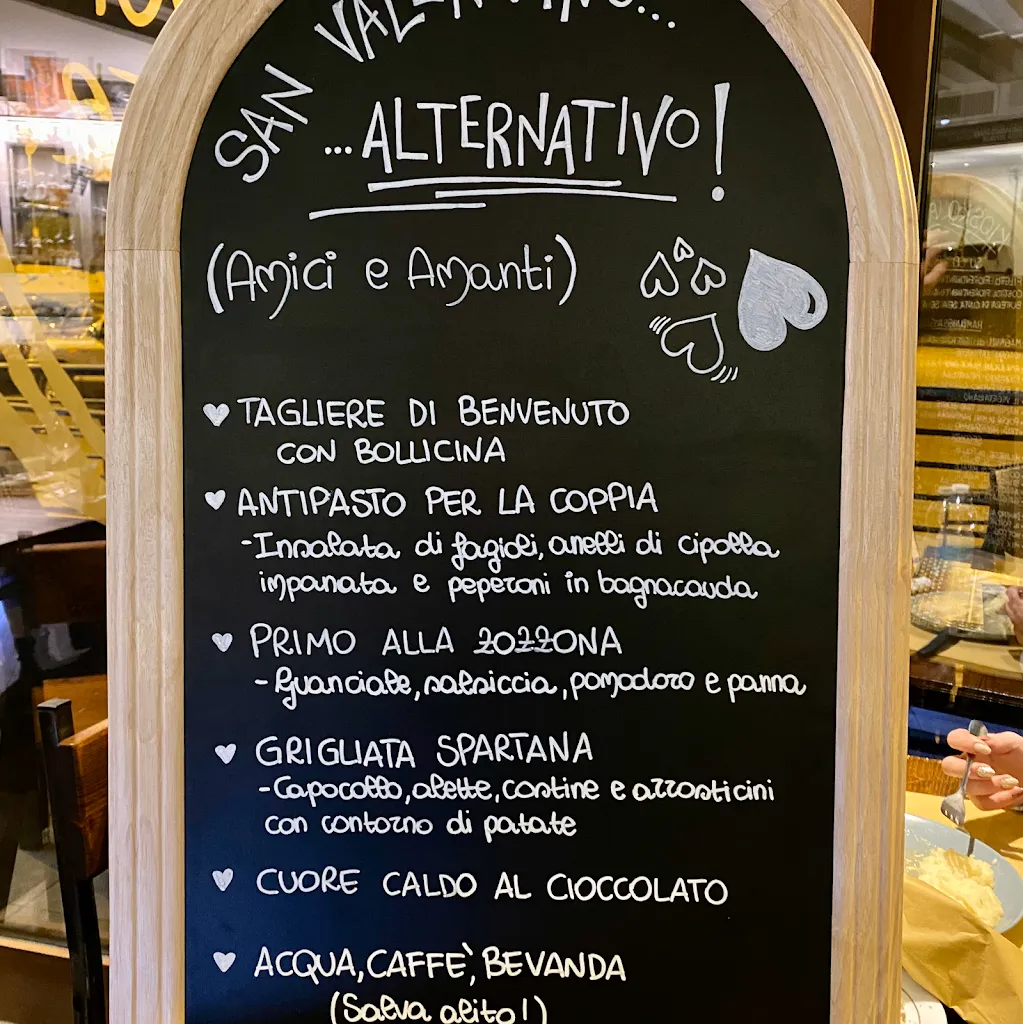 SAN VALENTINO...
...ALTERNATIVO!
(Amici e Amanti)
TAGLIERE DI BENVENUTO
CON BOLLICINA
ANTIPASTO PER LA COPPIA
-Insalata di fagioli, anelli di cipolla
impanata e peperoni in bagnacauda
PRIMO ALLA ZOZZONA
-Guanciale, salsiccia, pomodoro e panna
GRIGLIATA SPARTANA
-Capocollo, alette, costine e arrosticini
con contorno di patate
CUORE CALDO AL CIOCCOLATO
ACQUA, CAFFÈ, BEVANDA
(Salva alito!)